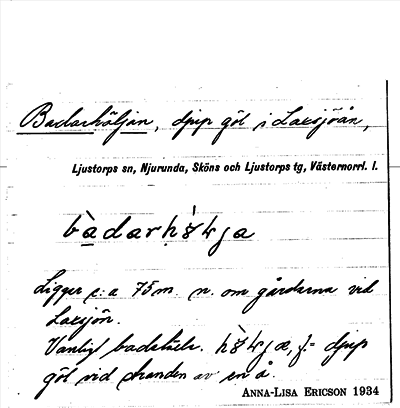 Badarhöljan, djup göl i Laxsjöån,
Ljustorps sn, Njurunda, Sköns och Ljustorps tg, Västernorrl. l.
Ligger c:a 75 m n. om gårdarna vid
Laxsjön.
Vanligt badställe. djup
göl vid stranden av en å.
ANNA-LISA ERICSON 1934